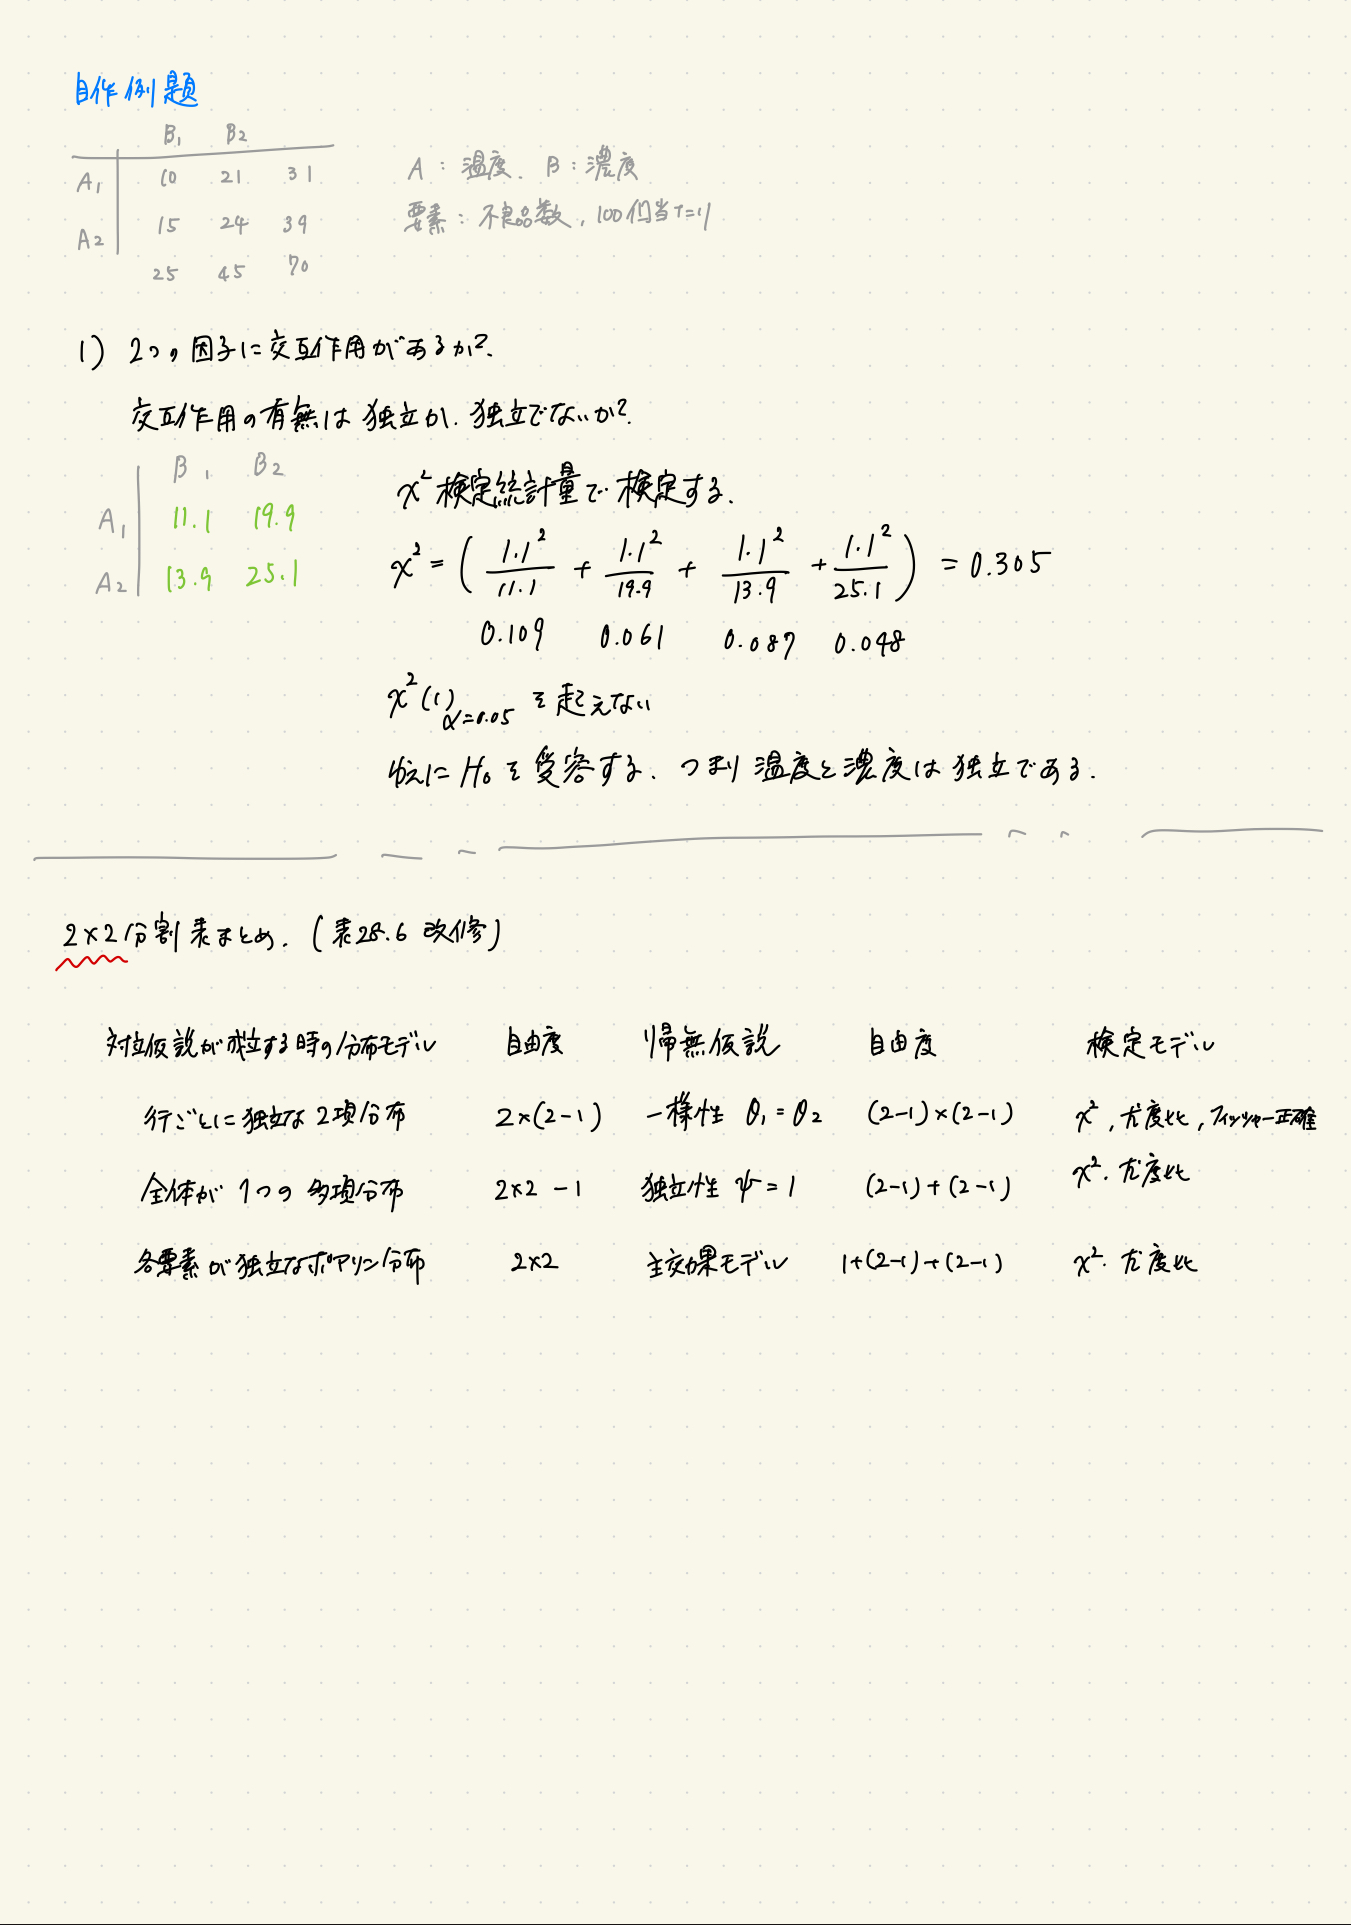 自作例題
B₁ B₂
A₁ 10 21 31
A₂ 15 24 39
25 45 70
A：温度、B：濃度
要素：不良品数，100個当たり
1) 2つの因子に交互作用があるか？
交互作用の有無は独立か、独立でないか？
B₁ B₂
A₁ 11.1 19.9
A₂ 13.9 25.1
χ²検定統計量で検定する．
χ² = ( 1.1²/11.1 + 1.1²/19.9 + 1.1²/13.9 + 1.1²/25.1 ) = 0.305
0.109 0.061 0.087 0.048
χ²(1)α=0.05 を起えない
ゆえに H₀ を受容する．つまり温度と濃度は独立である．
2×2分割表まとめ．(表28.6 改修)
対立仮説が成立する時の分布モデル 自由度 帰無仮説 自由度 検定モデル
行ごとに独立な2項分布 2×(2-1) 一様性 θ₁=θ₂ (2-1)×(2-1) χ²，尤度比，フィッシャー正確
全体が1つの多項分布 2×2-1 独立性 ψ=1 (2-1)+(2-1) χ²．尤度比
各要素が独立なポアソン分布 2×2 主効果モデル 1+(2-1)+(2-1) χ²．尤度比